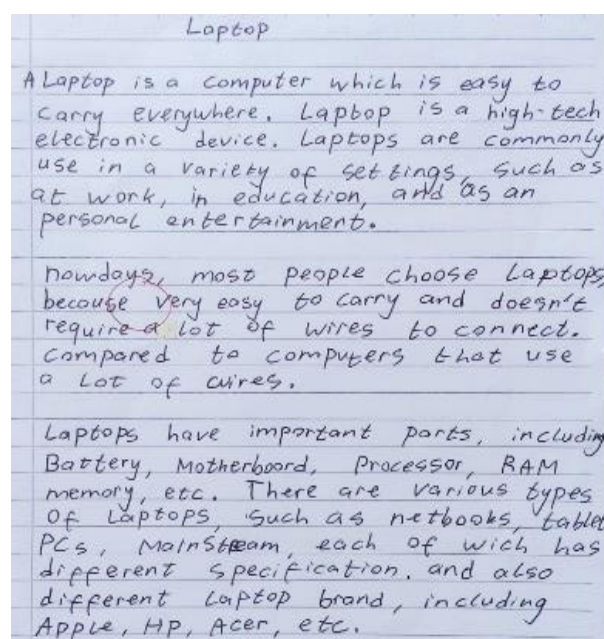 Laptop
A Laptop is a computer which is easy to
carry everywhere. Laptop is a high-tech
electronic device. Laptops are commonly
use in a variety of settings, such as
at work, in education, and as an
personal entertainment.
nowdays, most people choose Laptops,
becouse very easy to carry and doesn't
require a lot of wires to connect.
compared to computers that use
a lot of wires.
Laptops have important parts, including
Battery, Motherboard, Processor, RAM
memory, etc. There are various types
of Laptops, such as netbooks, tablet
PCs, MainStream, each of wich has
different specification. and also
different Laptop brand, including
Apple, Hp, Acer, etc.